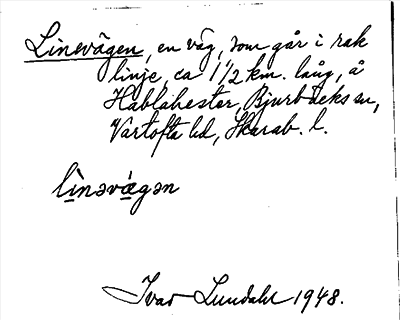 Linevägen, en väg, som går i rak
linje, ca 1 1/2 km. lång, å
Hablahester, Bjurbäcks sn,
Vartofta hd, Skarab. l.
lìnəvæ̀gən
Ivar Lundahl 1948.